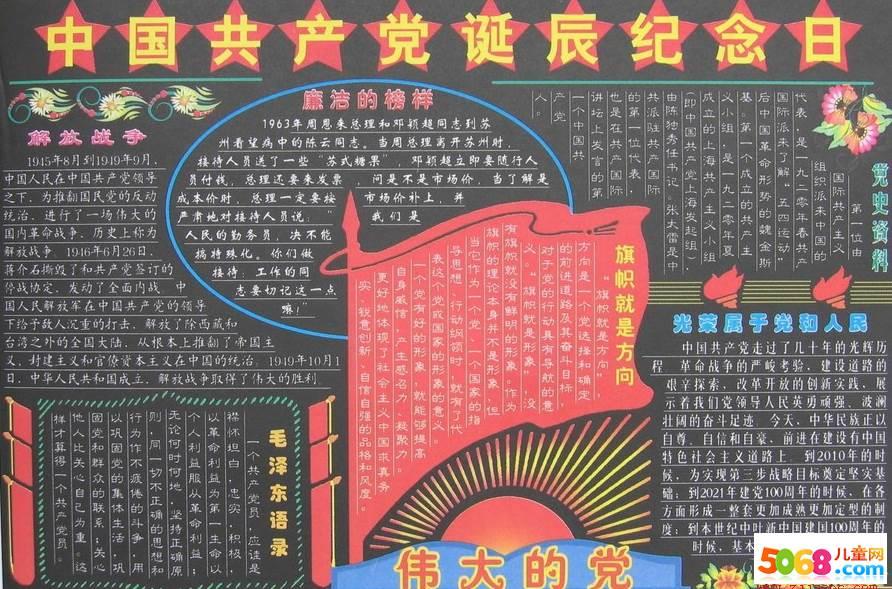 中国共产党诞辰纪念日
解放战争
1945年8月到1949年9月，
中国人民在中国共产党领导
之下，为推翻国民党的反动
统治，进行了一场伟大的
国内革命战争，历史上称为
解放战争。1946年6月26日，
蒋介石撕毁了和共产党签订的
停战协定，发动了全面内战，中
国人民解放军在中国共产党的领导
下给予敌人沉重的打击，解放了除西藏和
台湾之外的全国大陆，从根本上推翻了帝国主
义、封建主义和官僚资本主义在中国的统治；1949年10月1
日，中华人民共和国成立，解放战争取得了伟大的胜利。
廉洁的榜样
1963年周恩来总理和邓颖超同志到苏
州看望病中的陈云同志。当周总理离开苏州时，
接待人员送了一些“苏式糖果”，邓颖超立即要随行人
员付钱，总理还要来发票，问是不是市场价，当了解是
成本价时，总理一定要按市场价补上，并
严肃地对接待人员说：“我们是
人民的勤务员，决不能
搞特殊化。你们做
接待工作的同
志要切记这一点
嘛！”
党史资料
第一位由
国际共产主义
组织派来中国的
代表，是一九二〇年春共产
国际派来了解“五四运动”
后中国革命形势的魏金斯
基。第一个成立的共产主
义小组，是一九二〇年夏
成立的上海共产主义小组
（即中国共产党上海发起组），
由陈独秀任书记。张太雷是中
共派驻共产国际
的第一位代表，
也是在共产国际
讲坛上发言的第
一个中国共
产党
人。
旗帜就是方向
“旗帜就是方向，
方向是一个党选择和确定
的前进道路及其奋斗目标，
对于党的行动具有导航的意
义。“旗帜就是形象”，没
有旗帜就没有鲜明的形象。作为
旗帜的理论本身并不是形象，但
当它作为一个党、一个国家的指
导思想、行动纲领时，就有了代
表这个党或国家的形象的意义。
一个党有好的形象，就能够提高
自身威信，产生感召力、凝聚力。
更好地体现了社会主义中国求真务
实、锐意创新、自信自强的品格和风度。
光荣属于党和人民
中国共产党走过了几十年的光辉历
程，革命战争的严峻考验，建设道路的
艰辛探索，改革开放的创新实践，展
示着我们党领导人民英勇顽强、波澜
壮阔的奋斗足迹。今天，中华民族正以
自尊、自信和自豪，前进在建设有中国
特色社会主义道路上，到2010年的时
候，为实现第三步战略目标奠定坚实基
础；到2021年建党100周年的时候，在各
方面形成一整套更加成熟更加定型的制
度；到本世纪中叶新中国建国100周年的
时候，基本
毛泽东语录
一个共产党员，应该是
襟怀坦白，忠实，积极，
以革命利益为第一生命，以
个人利益服从革命利益；
无论何时何地，坚持正确原
则，同一切不正确的思想和
行为作不疲倦的斗争，用
以巩固党的集体生活，巩
固党和群众的联系；关心
他人比关心自己为重。这
样才算得一个共产党员。
伟大的党
5068儿童网
.com